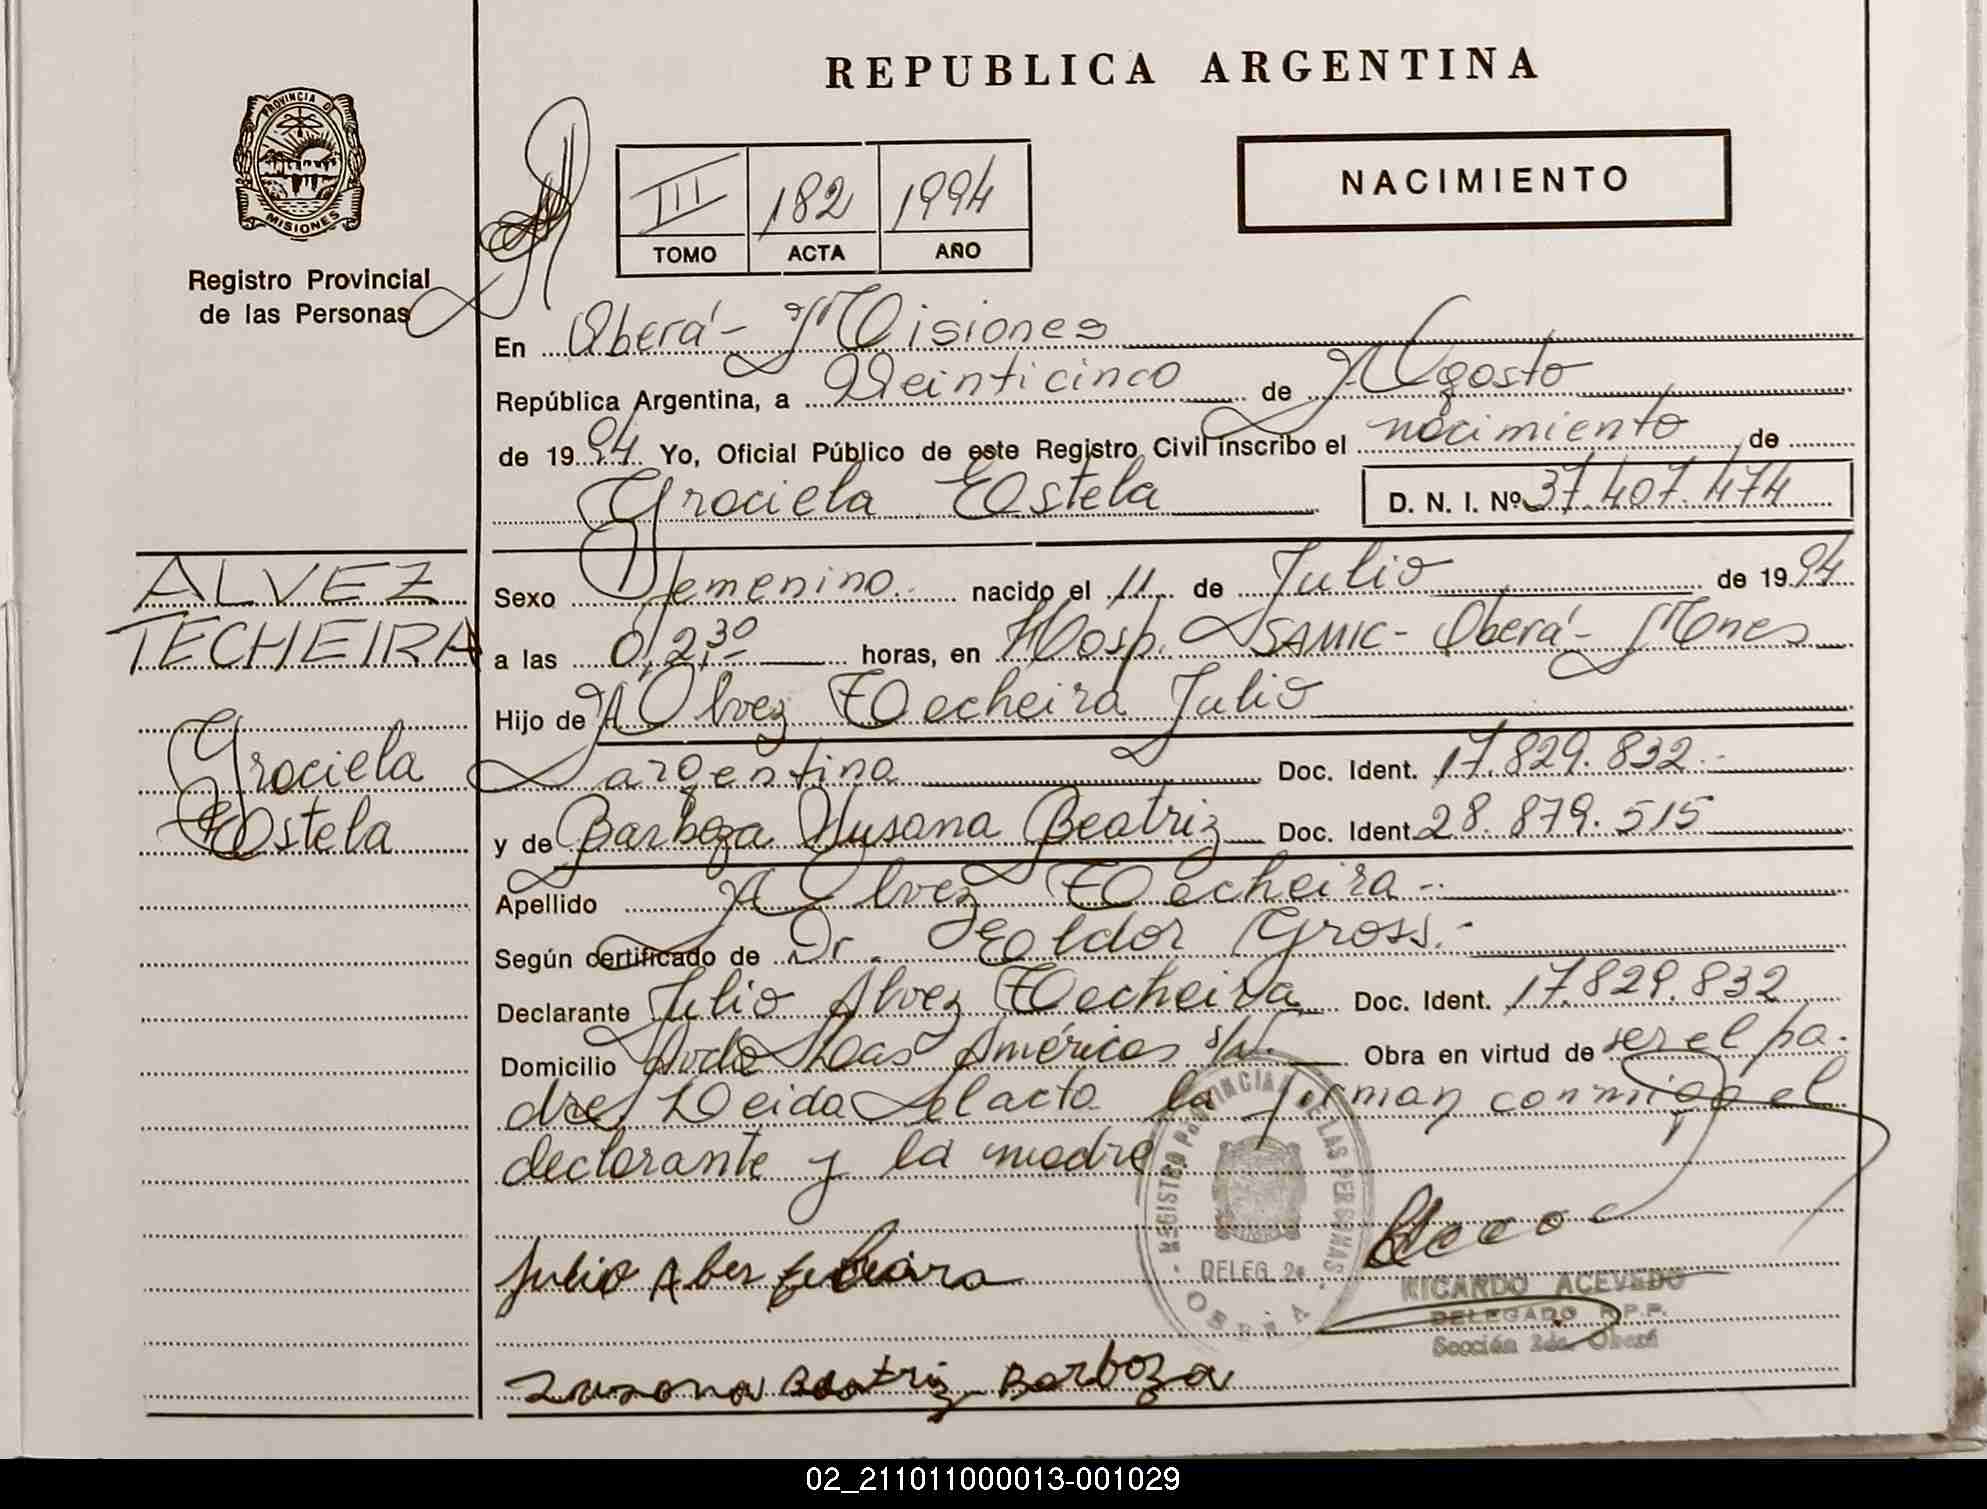 REPUBLICA ARGENTINA
PROVINCIA D
MISIONES
Registro Provincial
de las Personas
III 182 1994
TOMO ACTA AÑO
NACIMIENTO
En Oberá - Misiones
República Argentina, a Veinticinco de Agosto
de 1994 Yo, Oficial Público de este Registro Civil inscribo el nacimiento, de
Graciela Estela D. N. I. Nº 37.407.474
ALVEZ
TECHEIRA
Graciela
Estela
Sexo femenino.- nacido el 11 de Julio de 1994
a las 0,2,30 horas, en Hosp. SAMIC - Oberá - Mnes
Hijo de Alvez Techeira Julio
argentino Doc. Ident. 17.829.832.-
y de Barboza Susana Beatriz Doc. Ident. 28.879.515
Apellido Alvez Techeira.-
Según certificado de Dr. Eldor Gross.-
Declarante Julio Alvez Techeira Doc. Ident. 17.829.832
Domicilio Avda Las Américas s/N. Obra en virtud de ser el pa-
dre, Leida el acta la firman conmigo el
declarante y la madre
REGISTRO PROVINCIAL DE LAS PERSONAS
DELEG. 2a
OBERA
Julio Alves Techeira
RICARDO ACEVEDO
DELEGADO R.P.P.
Sección 2da. Oberá
Susana Beatriz Barboza
02_211011000013-001029